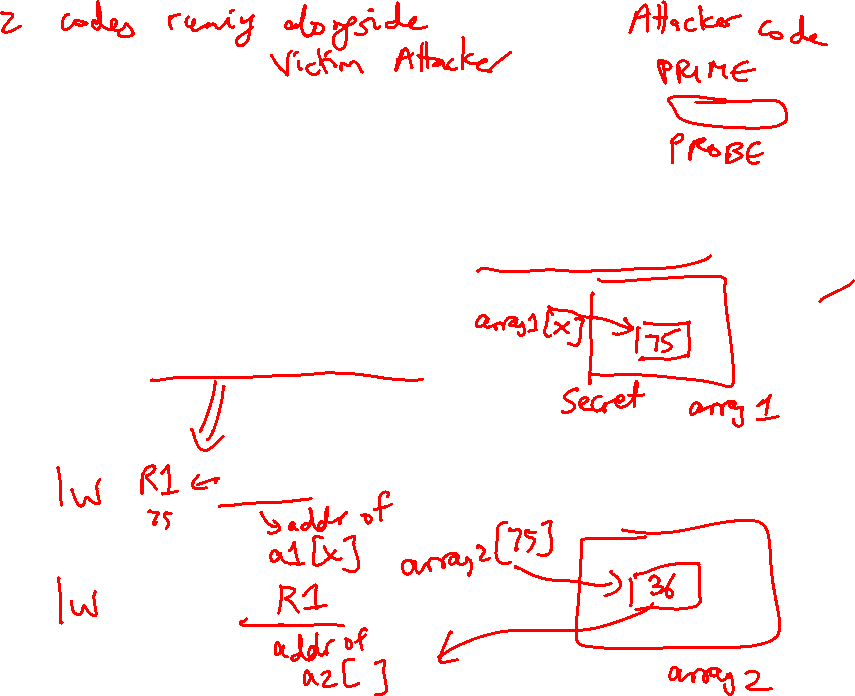 2 codes runing alongside
Victim Attacker
Attacker code
PRIME
PROBE
array1[x]
75
Secret
array 1
lw R1 ←
75
addr of
a1[x]
array2[75]
36
lw R1
addr of
a2[ ]
array 2